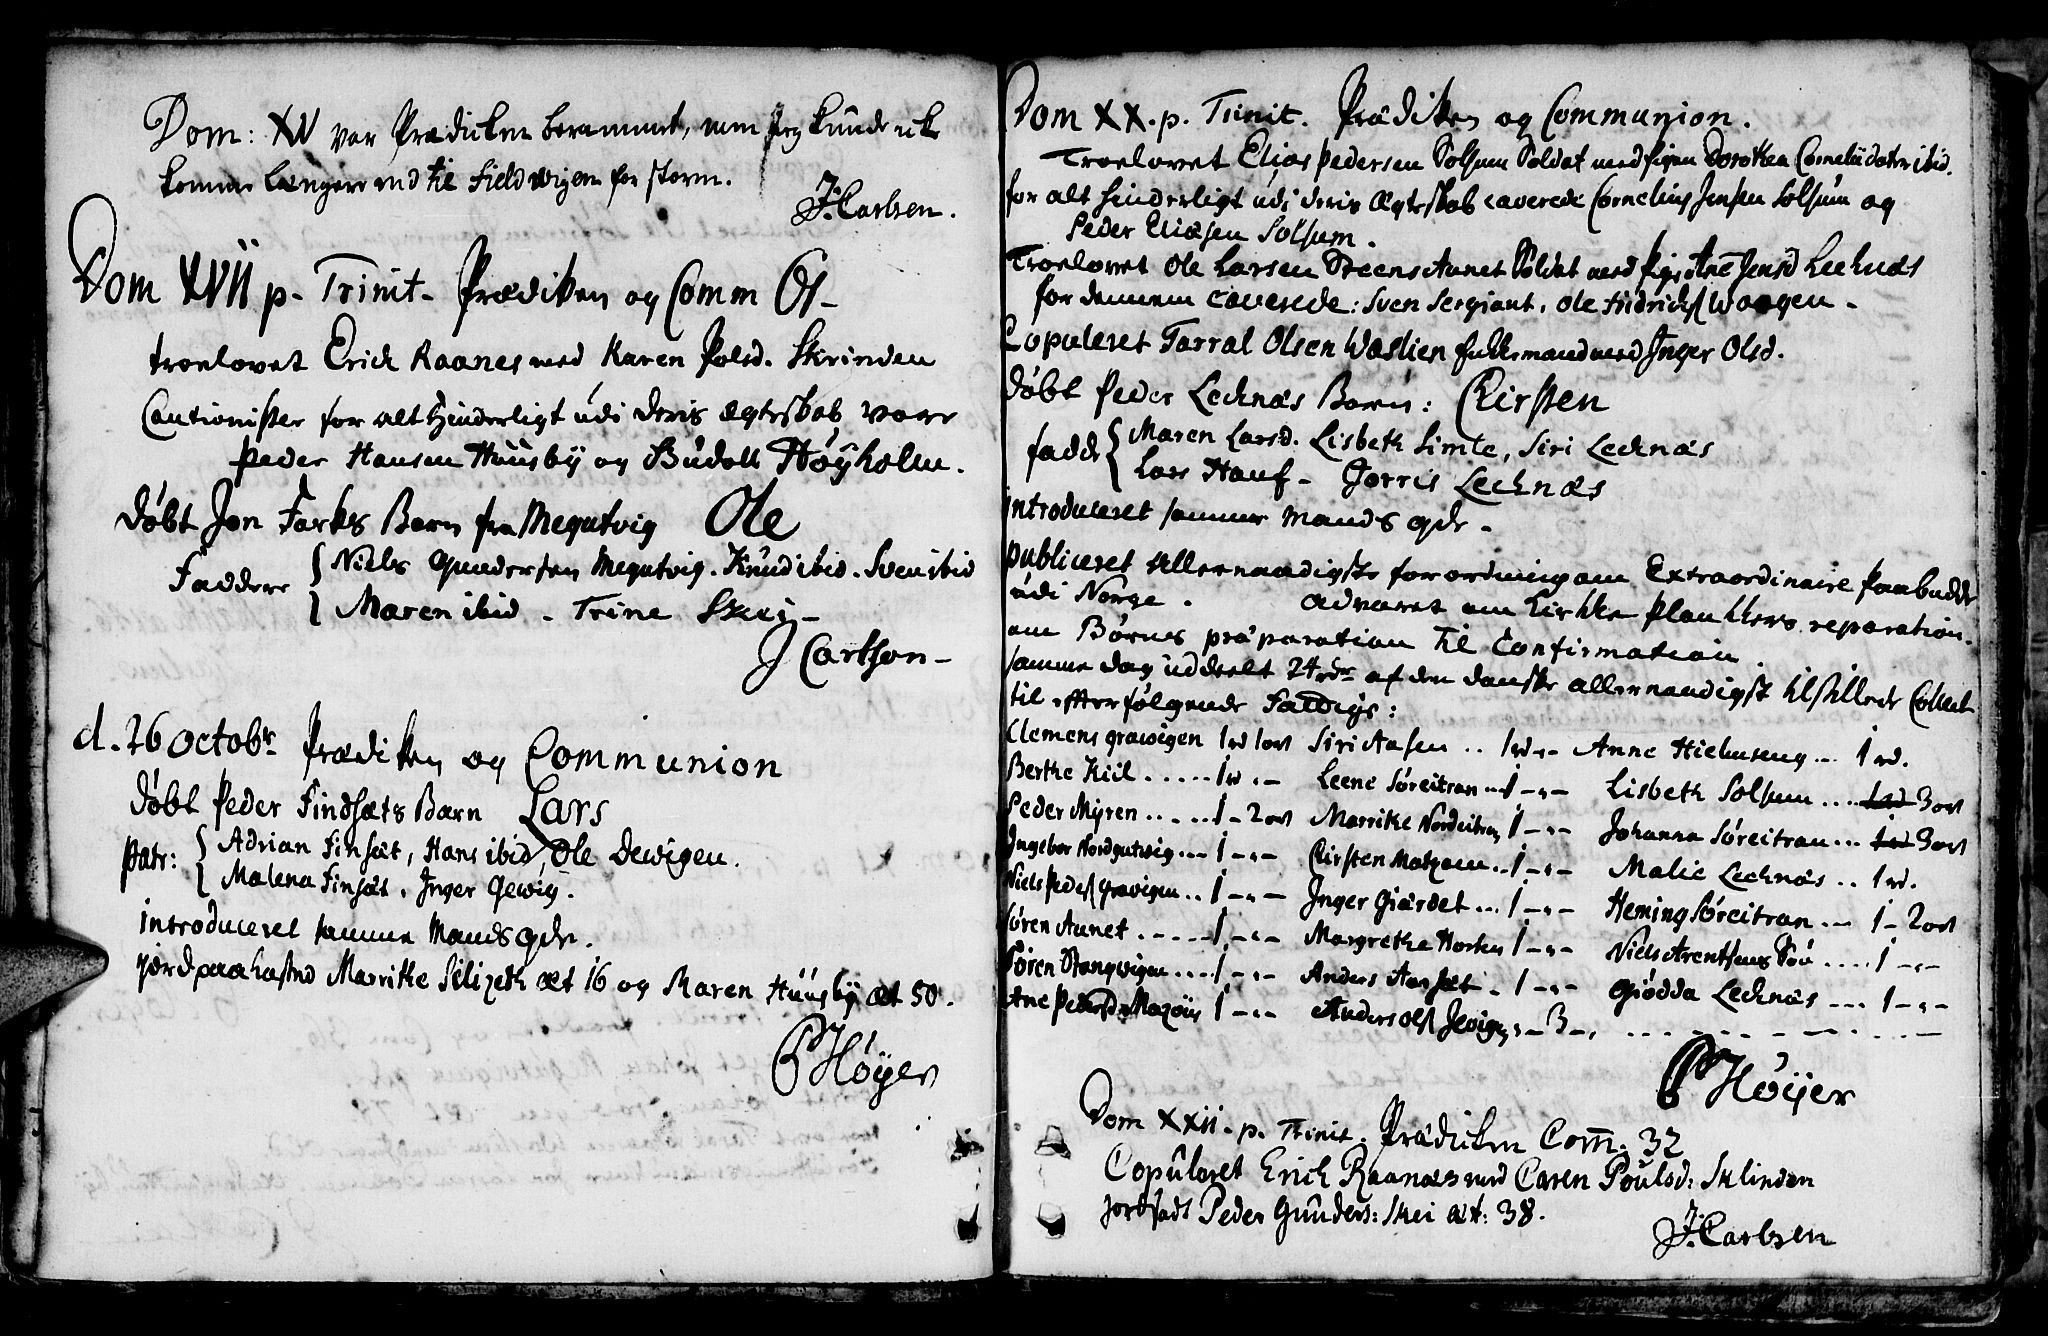 Dom: XV var Prædicken berammet, men jeg kunde icke
komme længere end til Fieldwigen for storm.
J: Carlsen.
Dom XVII p. Trinit. Prædiken og Comm
troelovet Erich Raanes med Karen Polsd. Skrinden
Cautionister for alt hinderligt udi deris ægteskab vare
Peder Hansen Huusby og Budoll Høyholm.
Døbt Jon Farks Barn fra Megutvig Ole
Faddere { Niels Gundersen Megutvig. Knud ibid. Sven ibid
{ Maren ibid. Trine Skei
J Carlson
d. 26 octobr Prædiken og Communion
Døbt Peder Findsæts Barn Lars
Patr: { Adrian Finsæt, Hans ibid, Ole Dewigen.
{ Malena Finsæt. Inger Gewig.
introduceret samme Mands qde.
jordpaakasted Marrike Selizeth æt 16 og Maren Huusby æt 50.
P Høyer
Dom XX. p. Trinit. Prædiken og Communion.
Troelovet Elias Pedersen Solsum Soldat med pigen Dorothea Corneliidater ibid.
for alt hinderligt udi deris Ægteskab caverede Cornelius Jensen Solsum og
Peder Eliæsen Solsum.
Troelovet Ole Larsen Steens Aunet Soldat med Pige Ane Jensd Lecknæs
for dennem caverede: Sven Sergiant, Ole Fridrichs Waagen.
Copuleret Tarral Olsen Wastien med Inger Olsd.
Døbt Peder Lecknæs Barn: Chirsten
fadd { Maren Larsd. Lisbeth Simle, Siri Lecknæs
{ Lars Hans. Jorris Lecknæs
introduceret samme Mands qde.
publiceret Allernaadigste forordning om Extraordinaire Paabudde
udi Norge. advaret om Kirkke Plankkers reparation.
om Børnes præparation til Confirmation.
samme dag uddeelt 24 rdr af den danske allernaadigst tilstillede Collect
til efterfølgende Fattige:
Clemens grawigen 1 rd 1 ort Siri Aasen .. 1 rd.- Anne Hielmseng ... 1 rd.
Berthe Kiil ..... 1 rd .- Leene Søreitran ... 1 -.- Lisbeth Solsum .... 1 rd 3 ort
Peder Myren ..... 1 - 2 ort Marrike Nordeitran 1 -.- Johanna Søreitran ... 1 rd 3 ort
Ingebor Nordgutwig ... 1 -.- Chirsten .. 1 -.- Malie Lecknæs .. 1 rd.
Niels Peders Grawigen .. 1 -.- Inger Giærdet ... 1 -.- Heming Søreitran ... 1 - 2 ort
Søren Aunet ..... 1 -.- Margrethe Horken 1 -.- Niels Arentsens .... 1 -.-
Søren Stangwigen .... 1 -.- Anders Aarsæt . 1 -.- Giødda Lecknæs .... 1 -.-
Ane Pedersdr 1 -.- Anders Ols .- 3 -.
P Høyer
Dom XXII. p. Trinit. Prædicken Com̅. 32
Copuleret Erich Raanæs med Caren Poulsd: Sklinden
jordfæst Peder Gunders: Skei æt: 38.
J: Carlsen